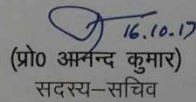 16.10.17
(प्रो० आनन्द कुमार)
सदस्य-सचिव